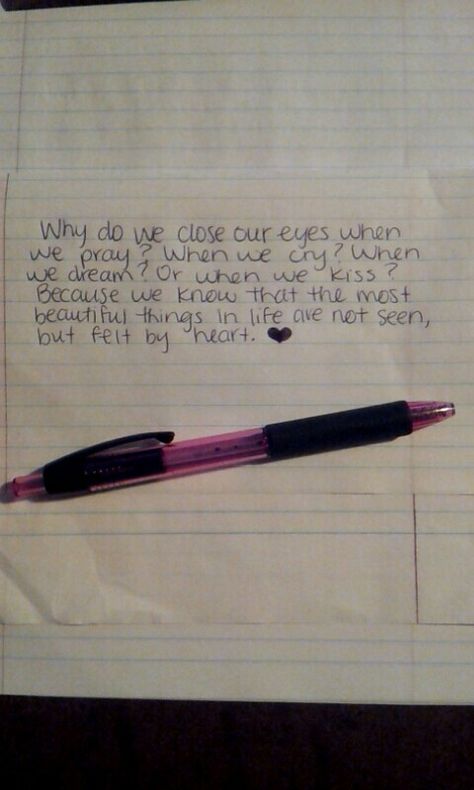 Why do we close our eyes when
we pray? When we cry? When
we dream? Or when we kiss?
Because we know that the most
beautiful things in life are not seen,
but felt by heart. ♥